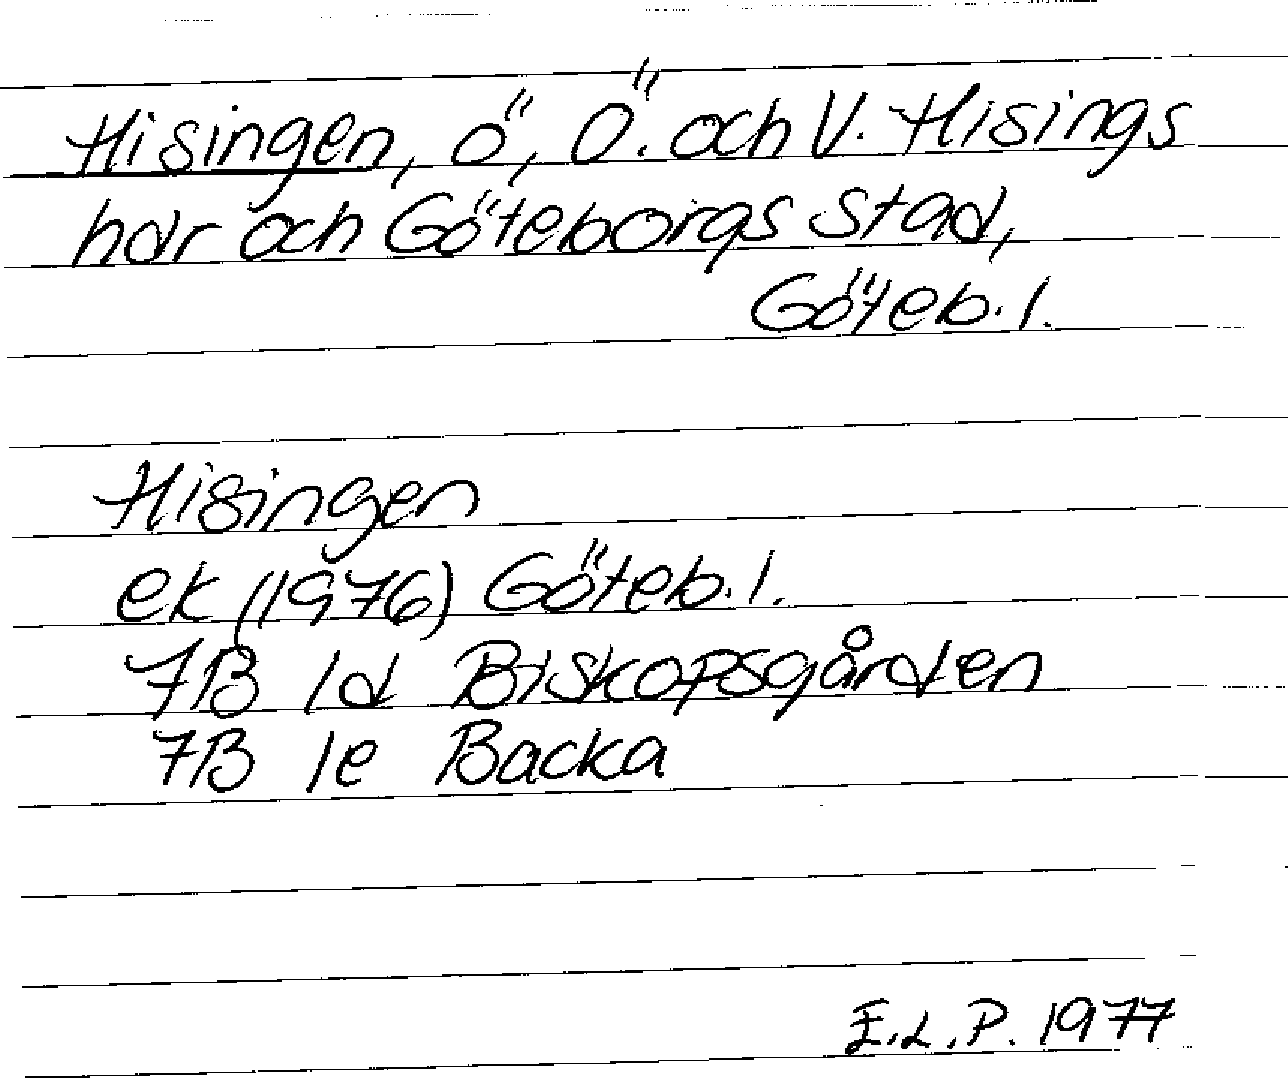 Hisingen, ö, Ö. och V. Hisings
hdr och Göteborgs stad,
Göteb. l.
Hisingen
ek (1976) Göteb. l.
7B 1d Biskopsgården
7B 1e Backa
E.L.P. 1977